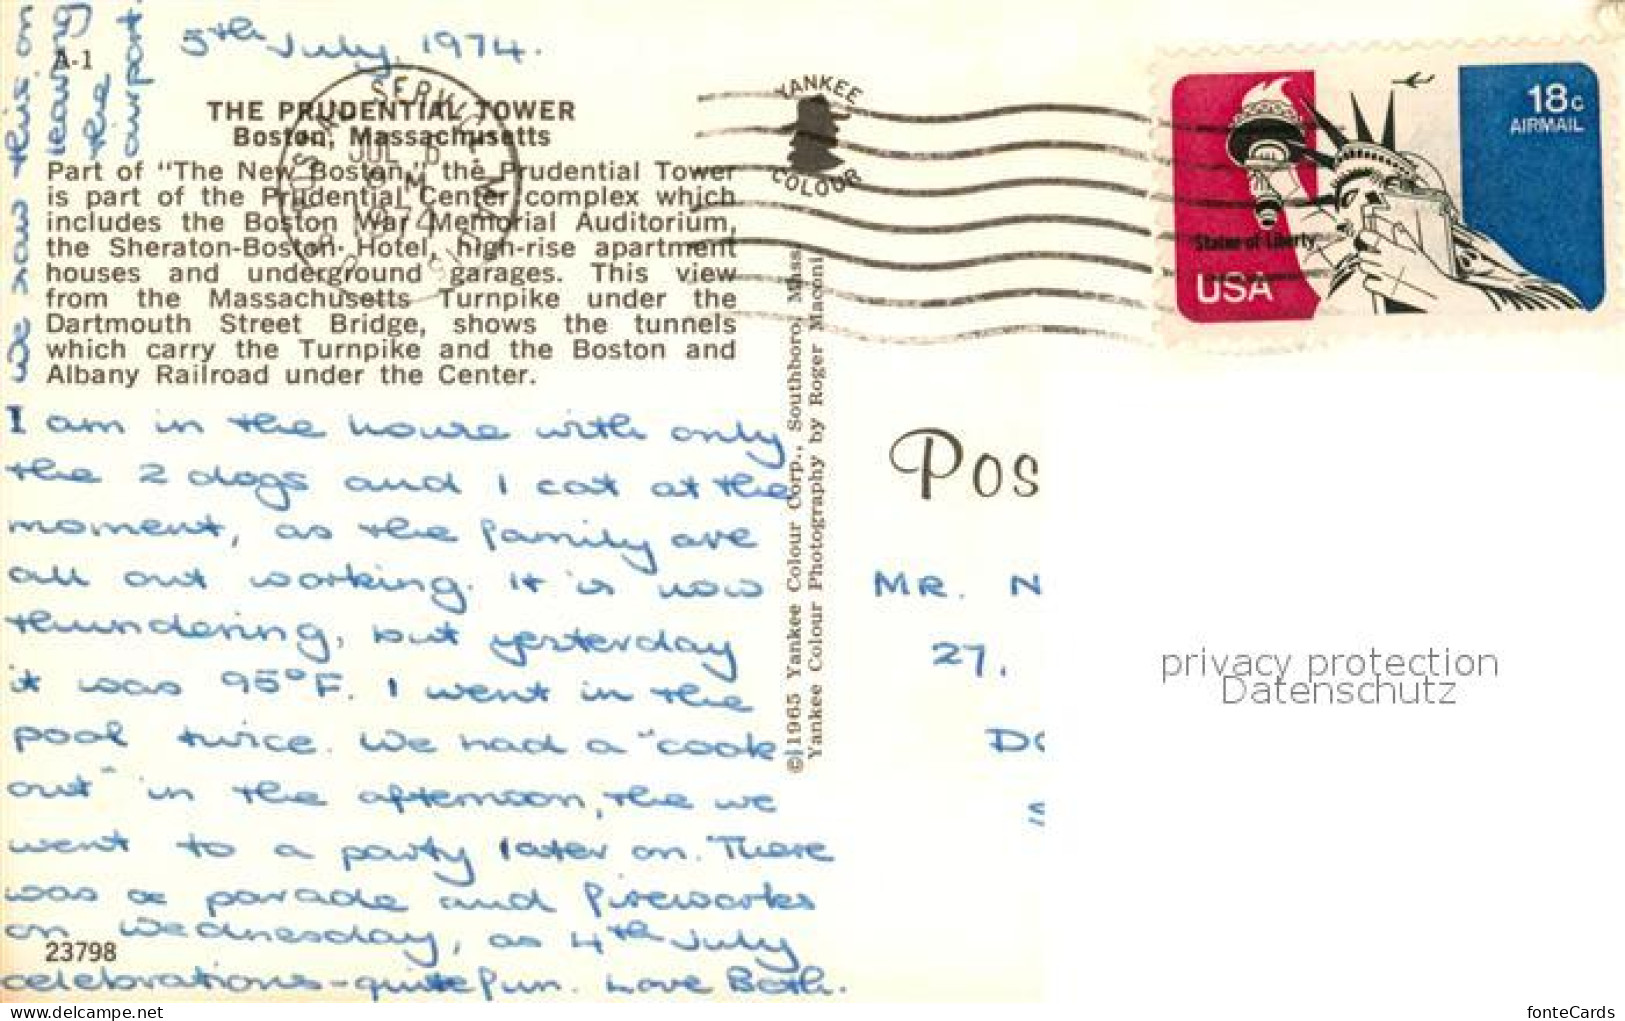 5th July, 1974.
A-1
THE PRUDENTIAL TOWER
Boston, Massachusetts
Part of "The New Boston," the Prudential Tower
is part of the Prudential Center complex which
includes the Boston War Memorial Auditorium,
the Sheraton-Boston Hotel, high-rise apartment
houses and underground garages. This view
from the Massachusetts Turnpike under the
Dartmouth Street Bridge, shows the tunnels
which carry the Turnpike and the Boston and
Albany Railroad under the Center.
We saw this on
leaving
the
airport.
I am in the house with only
the 2 dogs and 1 cat at the
moment, as the family are
all out working. It is now
thundering, but yesterday
it was 95°F. I went in the
pool twice. We had a "cook
out" in the afternoon, the we
went to a party later on. There
was a parade and fireworks
on Wednesday, as 4th July
celebrations - quite fun. Love Beth.
23798
©1965 Yankee Colour Corp., Southboro, Mass.
Yankee Colour Photography by Roger Maconi
YANKEE
COLOUR
JUL 6
PM
1974
18c
AIRMAIL
Statue of Liberty
USA
Pos
MR. N
27.
DO
S
privacy protection
Datenschutz
www.delcampe.net
fonteCards